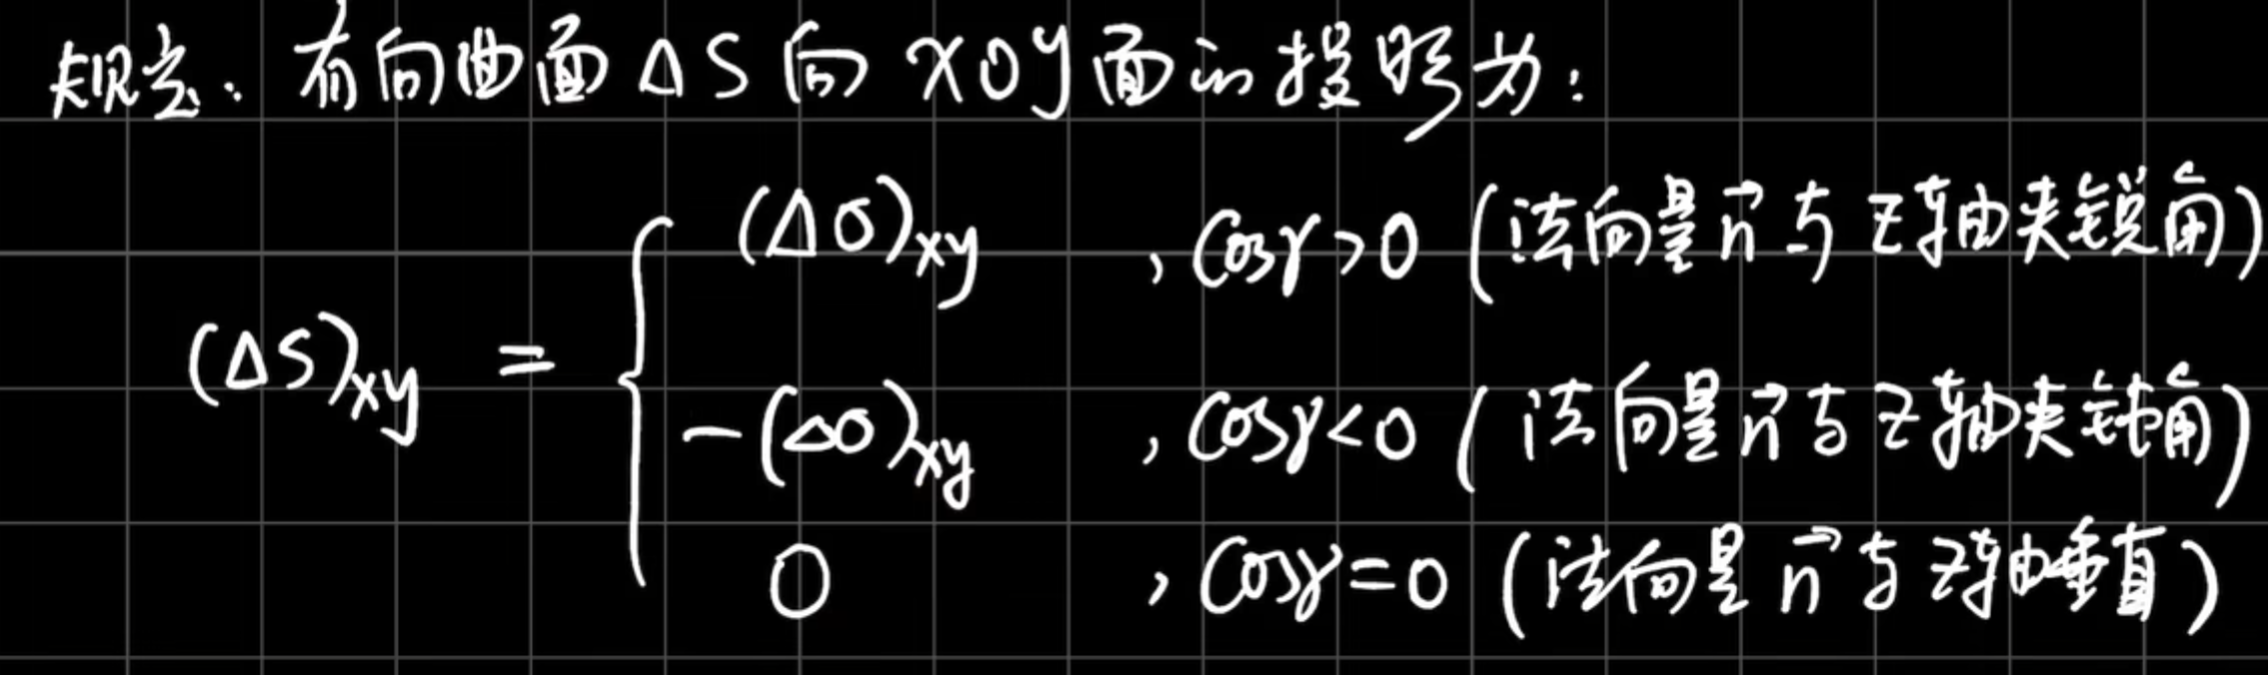 规定：有向曲面ΔS向xoy面的投影为：
(Δσ)xy ，cosγ>0 (法向量n⃗与z轴夹锐角)
(ΔS)xy = {
-(Δσ)xy ，cosγ<0 (法向量n⃗与z轴夹钝角)
0 ，cosγ=0 (法向量n⃗与z轴垂直)